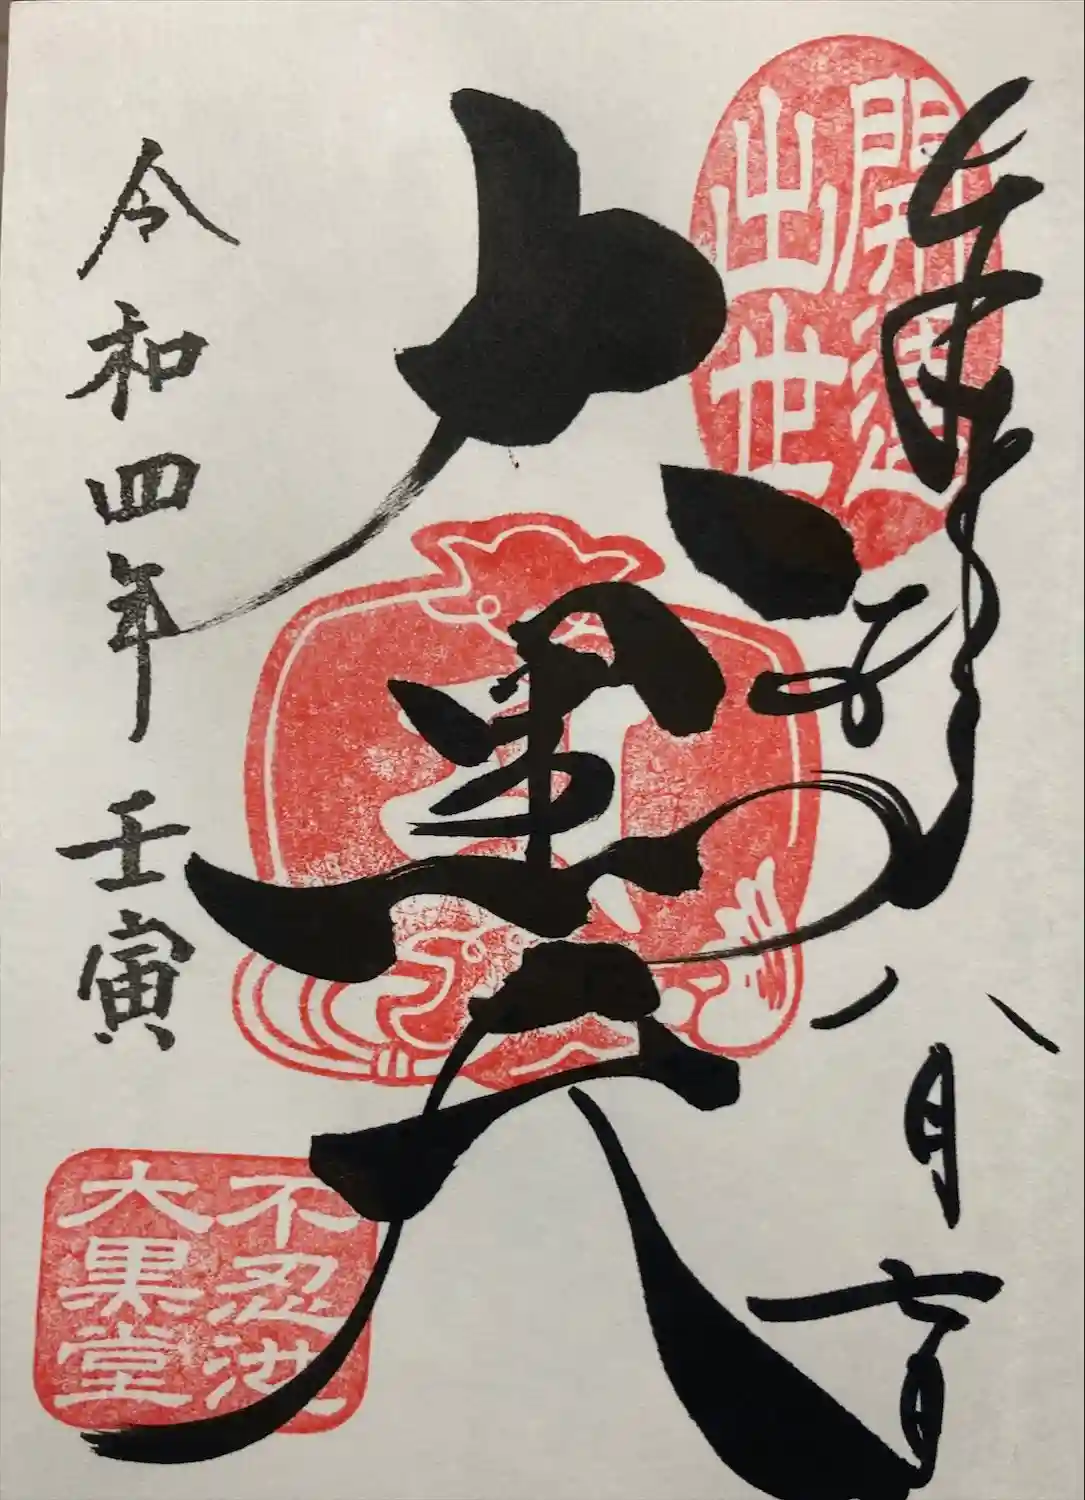 開運
出世
奉拝
八月六日
大黒天
令和四年 壬寅
不忍池
大黒堂